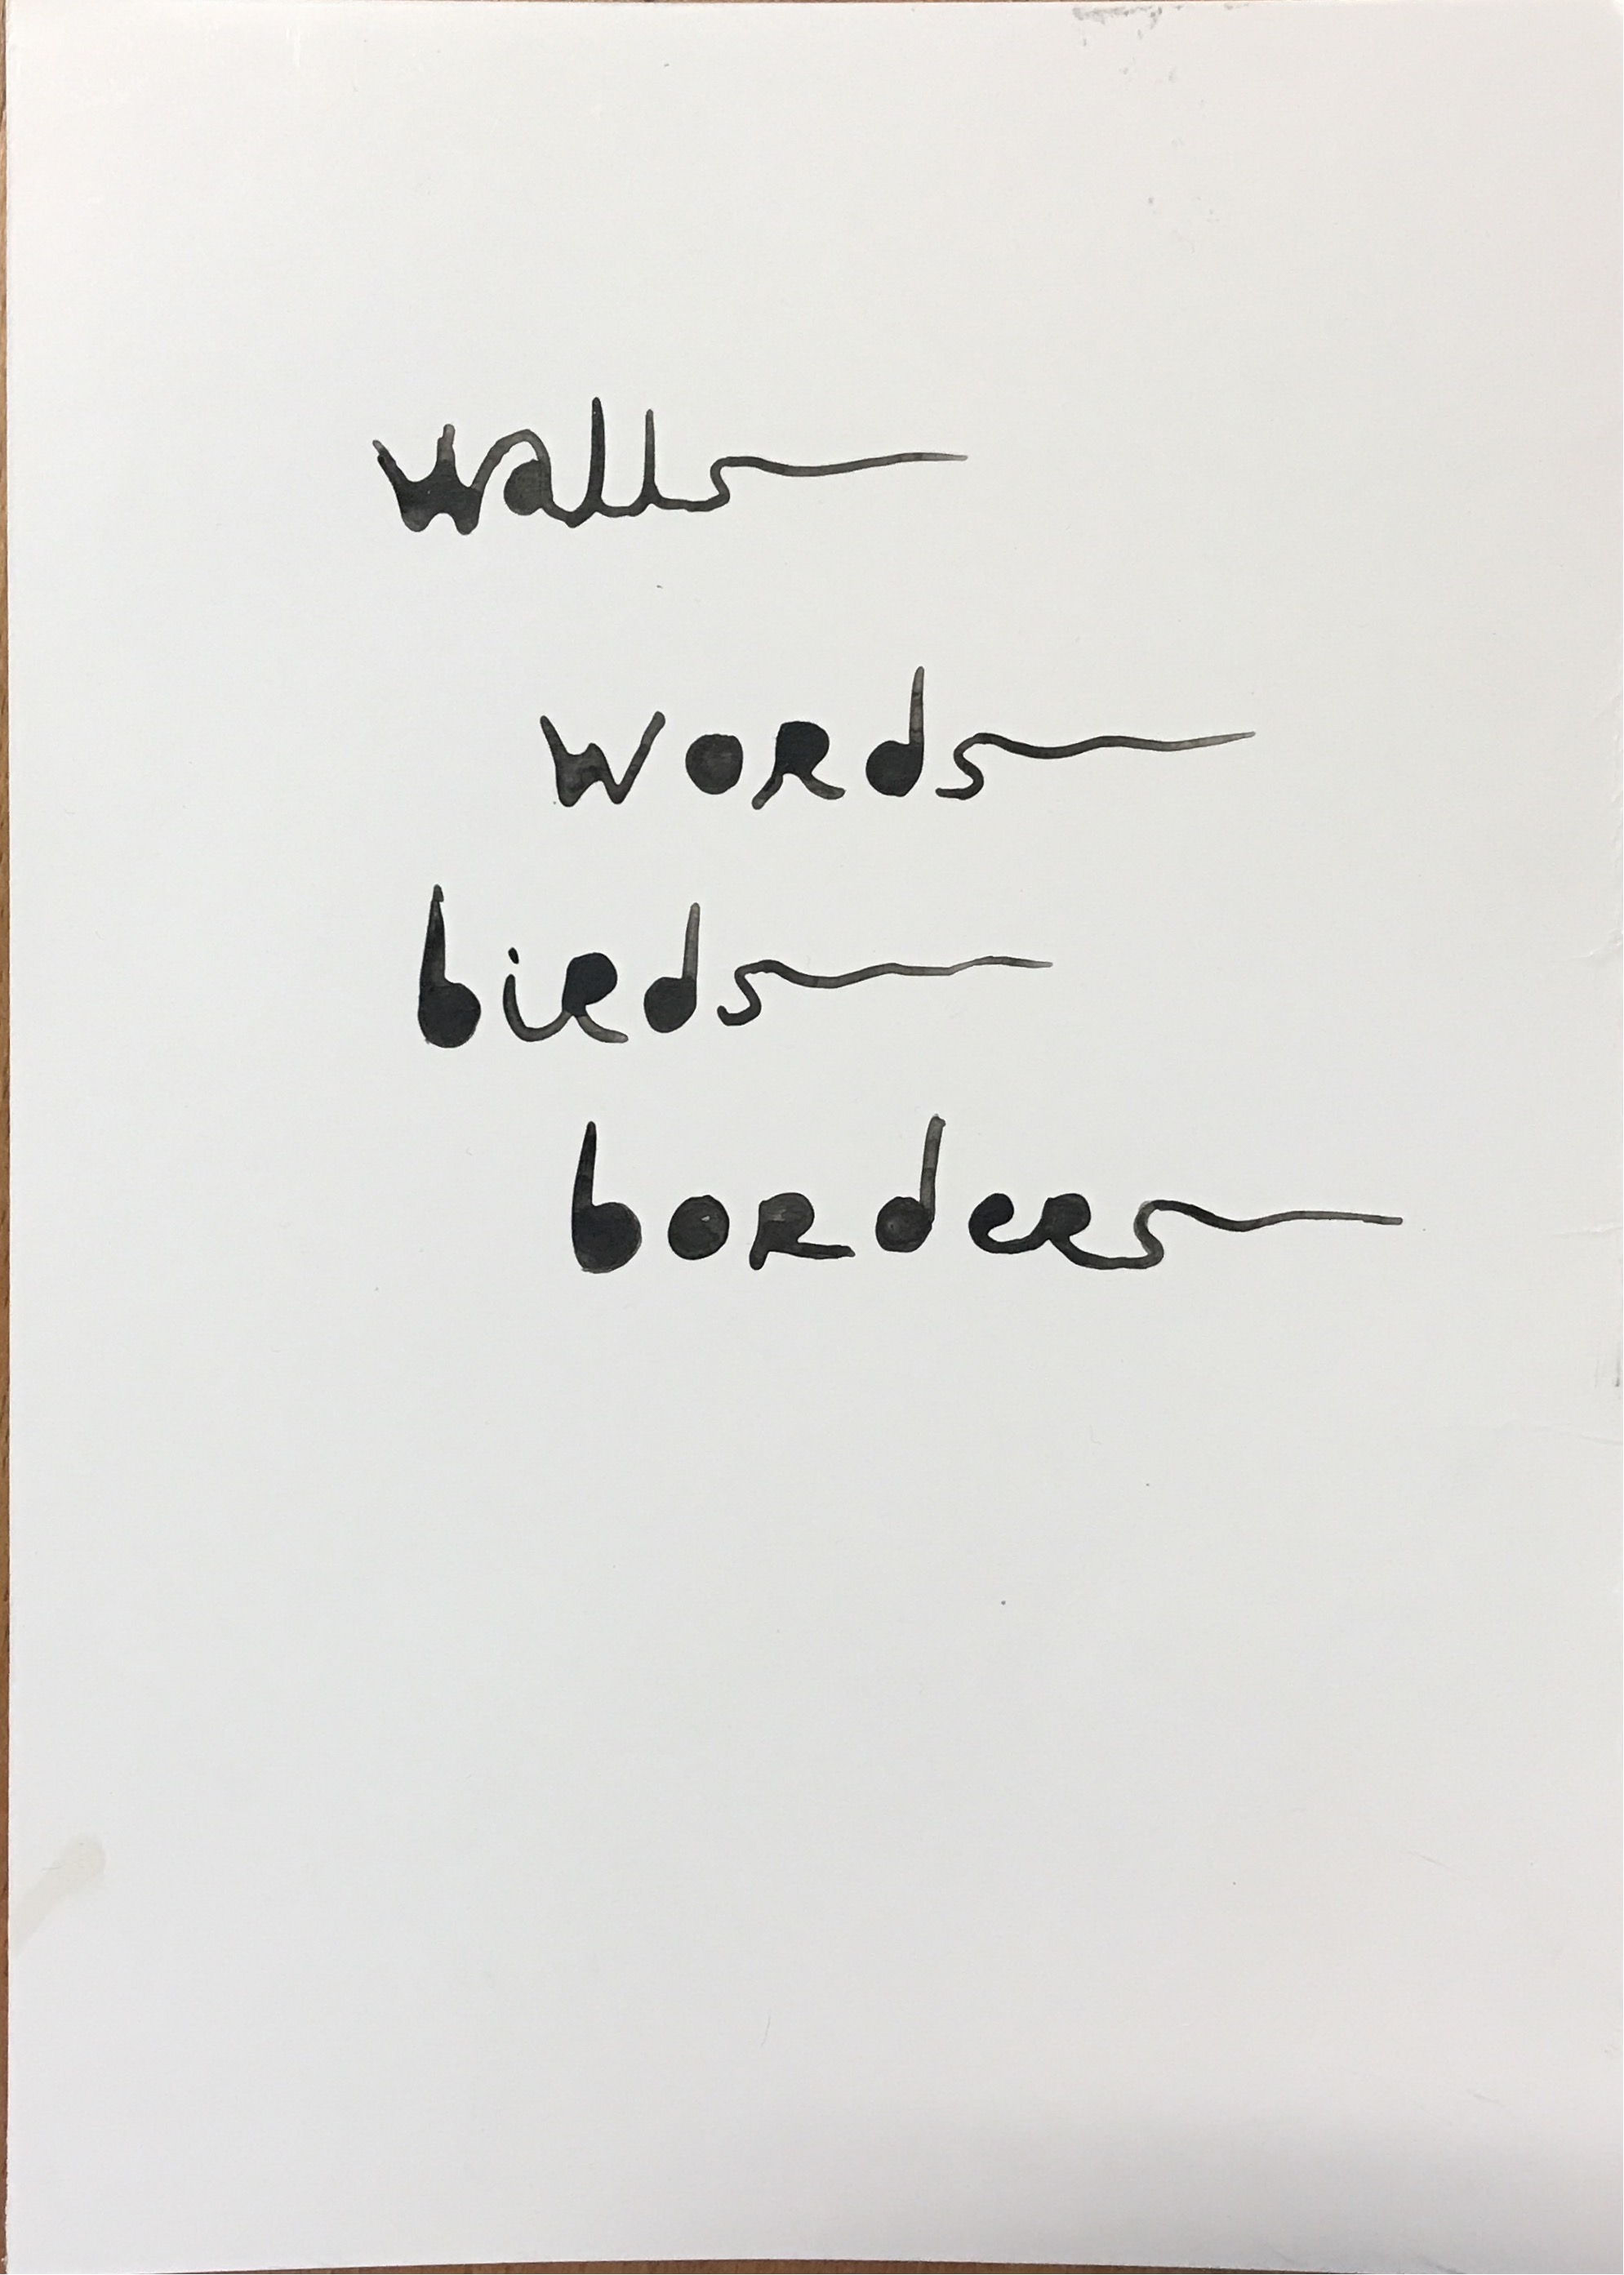 walls
words
birds
borders